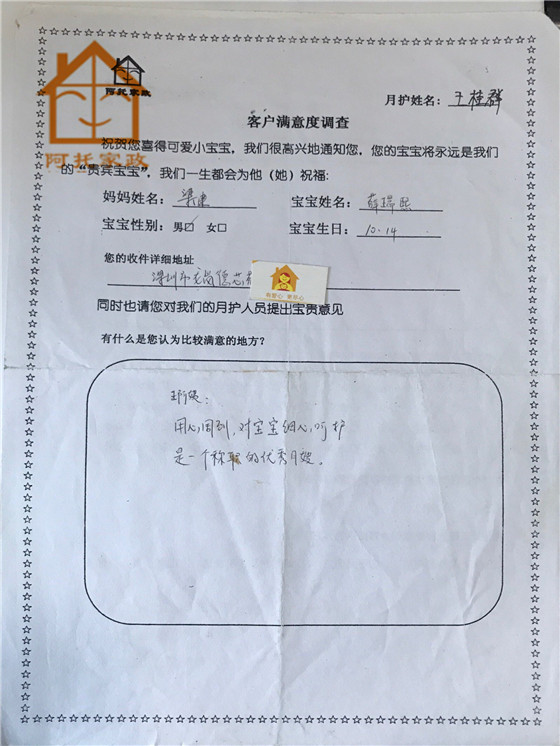 阿托家政
阿托家政
月护姓名：王桂群
客户满意度调查
祝贺您喜得可爱小宝宝，我们很高兴地通知您，您的宝宝将永远是我们
的“贵宾宝宝”，我们一生都会为他（她）祝福：
妈妈姓名：梁
宝宝姓名：薛瑞熙
宝宝性别：男☑ 女□
宝宝生日：10.14
您的收件详细地址
深圳市龙岗德芯
有爱心 更安心
同时也请您对我们的月护人员提出宝贵意见
有什么是您认为比较满意的地方？
用心周到，对宝宝细心呵护
是一个称职的优秀月嫂。